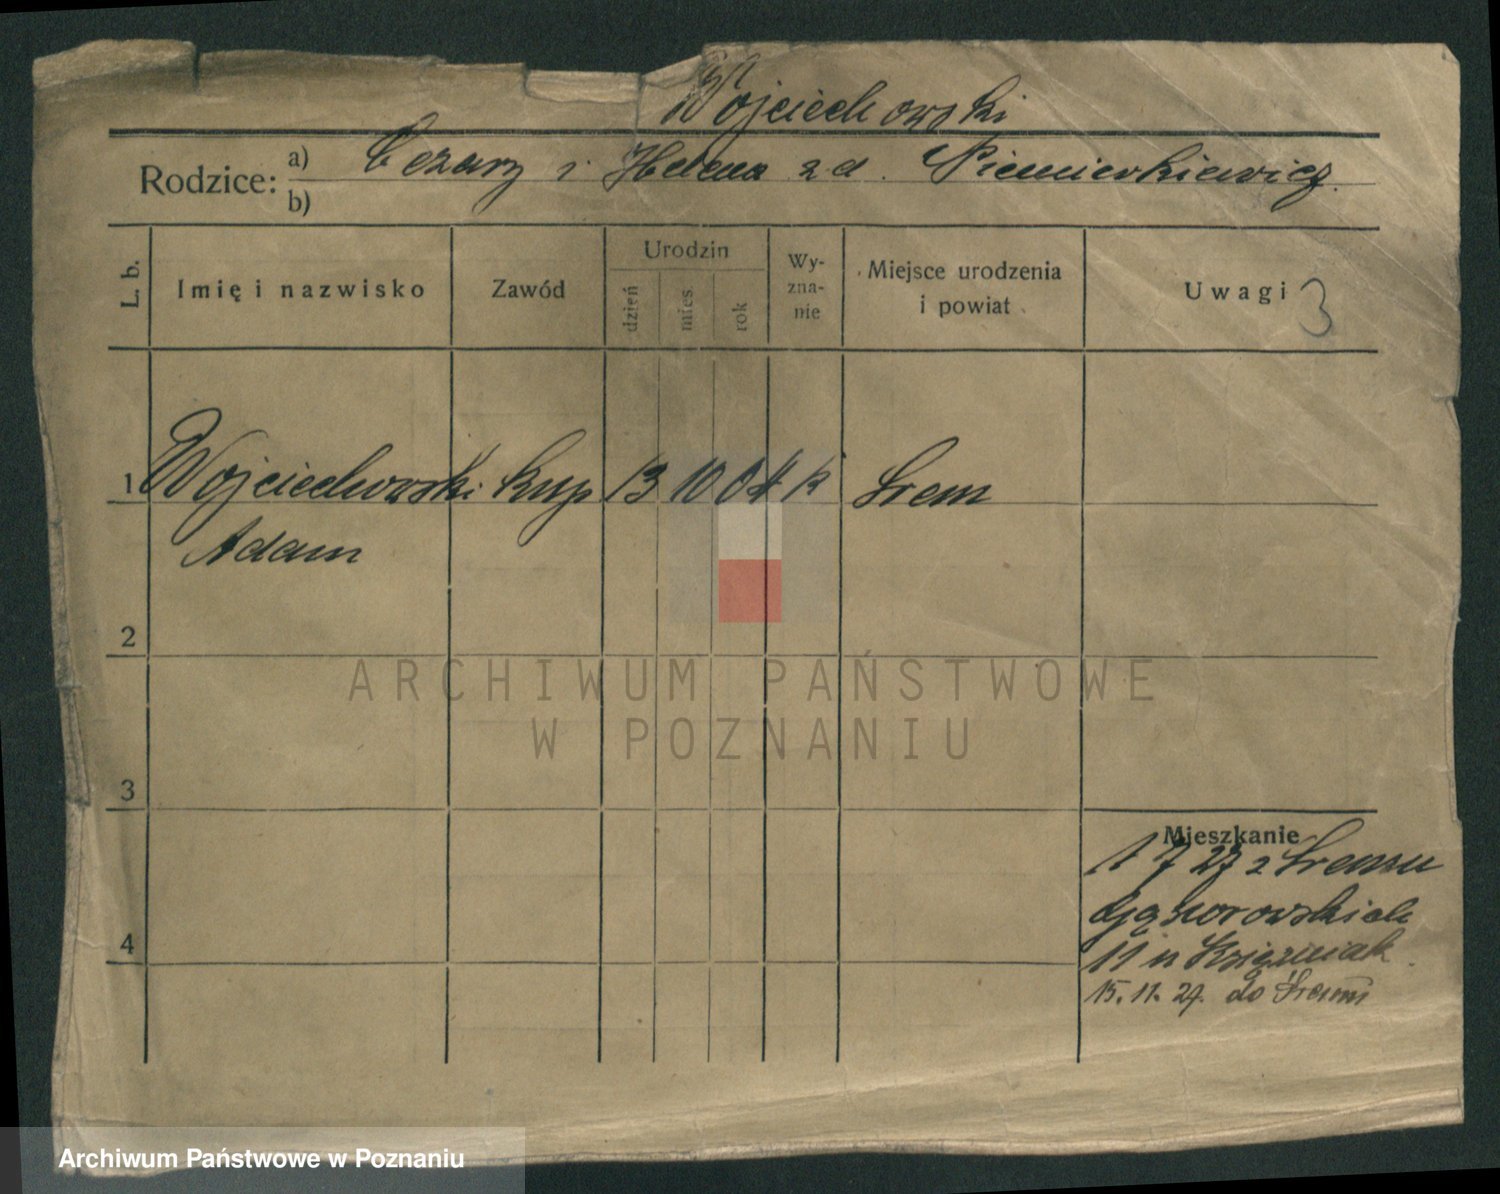 Wojciechowski
Rodzice: a) Cezary i Helena z d. Niemierkiewicz.
b)
L. b.
Imię i nazwisko
Zawód
Urodzin
dzień
mies.
rok
Wy-
zna-
nie
Miejsce urodzenia
i powiat
Uwagi 3
1 Wojciechowski kup 13 10 04 k Śrem
Adam
2
3
4
Mieszkanie
1 7 27 z Śremu
Gąsiorowskich
11 u Księżniak
15. 11. 29. do Śremu
ARCHIWUM PAŃSTWOWE
W POZNANIU
Archiwum Państwowe w Poznaniu